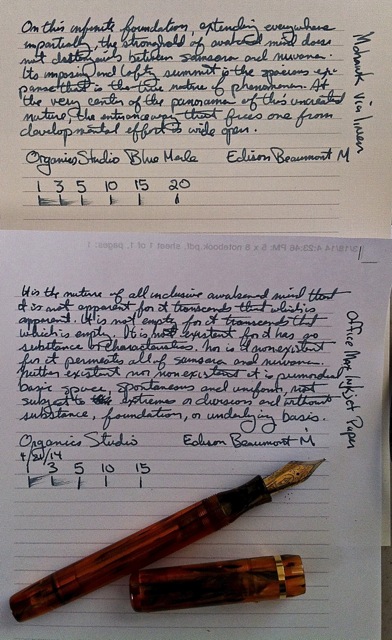 On this infinite foundation, extending everywhere
impartially, the stronghold of awakened mind does
not distinguish between samsara and nirvana.
Its imposing and lofty summit is the spacious ex-
panse that is the true nature of phenomena. At
the very center of the panorama of this uncreated
nature, the entranceway that frees one from
developmental effort is wide open.
Mohawk Via Linen
Organics Studio Blue Merle Edison Beaumont M
1 3 5 10 15 20
3/19/14 4:23:46 PM: 5 x 8 notebook.pdf, sheet 1 of 1, pages: 1
It is the nature of all inclusive awakened mind that
it is not apparent for it transcends that which is
apparent. It is not empty for it transcends that
which is empty. It is not existent for it has no
substance or characteristics. Nor is it nonexistent
for it permeates all of samsara and nirvana.
Neither existent nor nonexistent it is primordial
basic space, spontaneous and uniform, not
subject to extremes or divisions and without
substance, foundation, or underlying basis.
Office Max Inkjet Paper
Organics Studio Edison Beaumont M
1 3 5 10 15